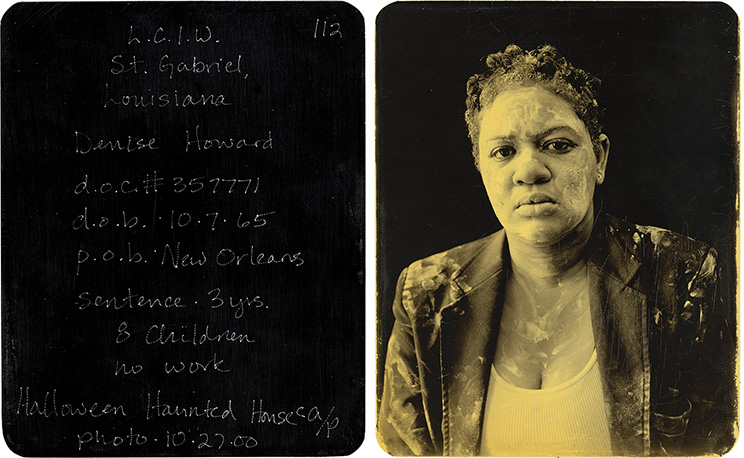 112
L.C.I.W.
St. Gabriel,
Louisiana
Denise Howard
d.o.c.# 357771
d.o.b. · 10 · 7 · 65
p.o.b. · New Orleans
Sentence · 3 yrs.
8 Children
no work
Halloween Haunted House
photo · 10 · 27 · 00